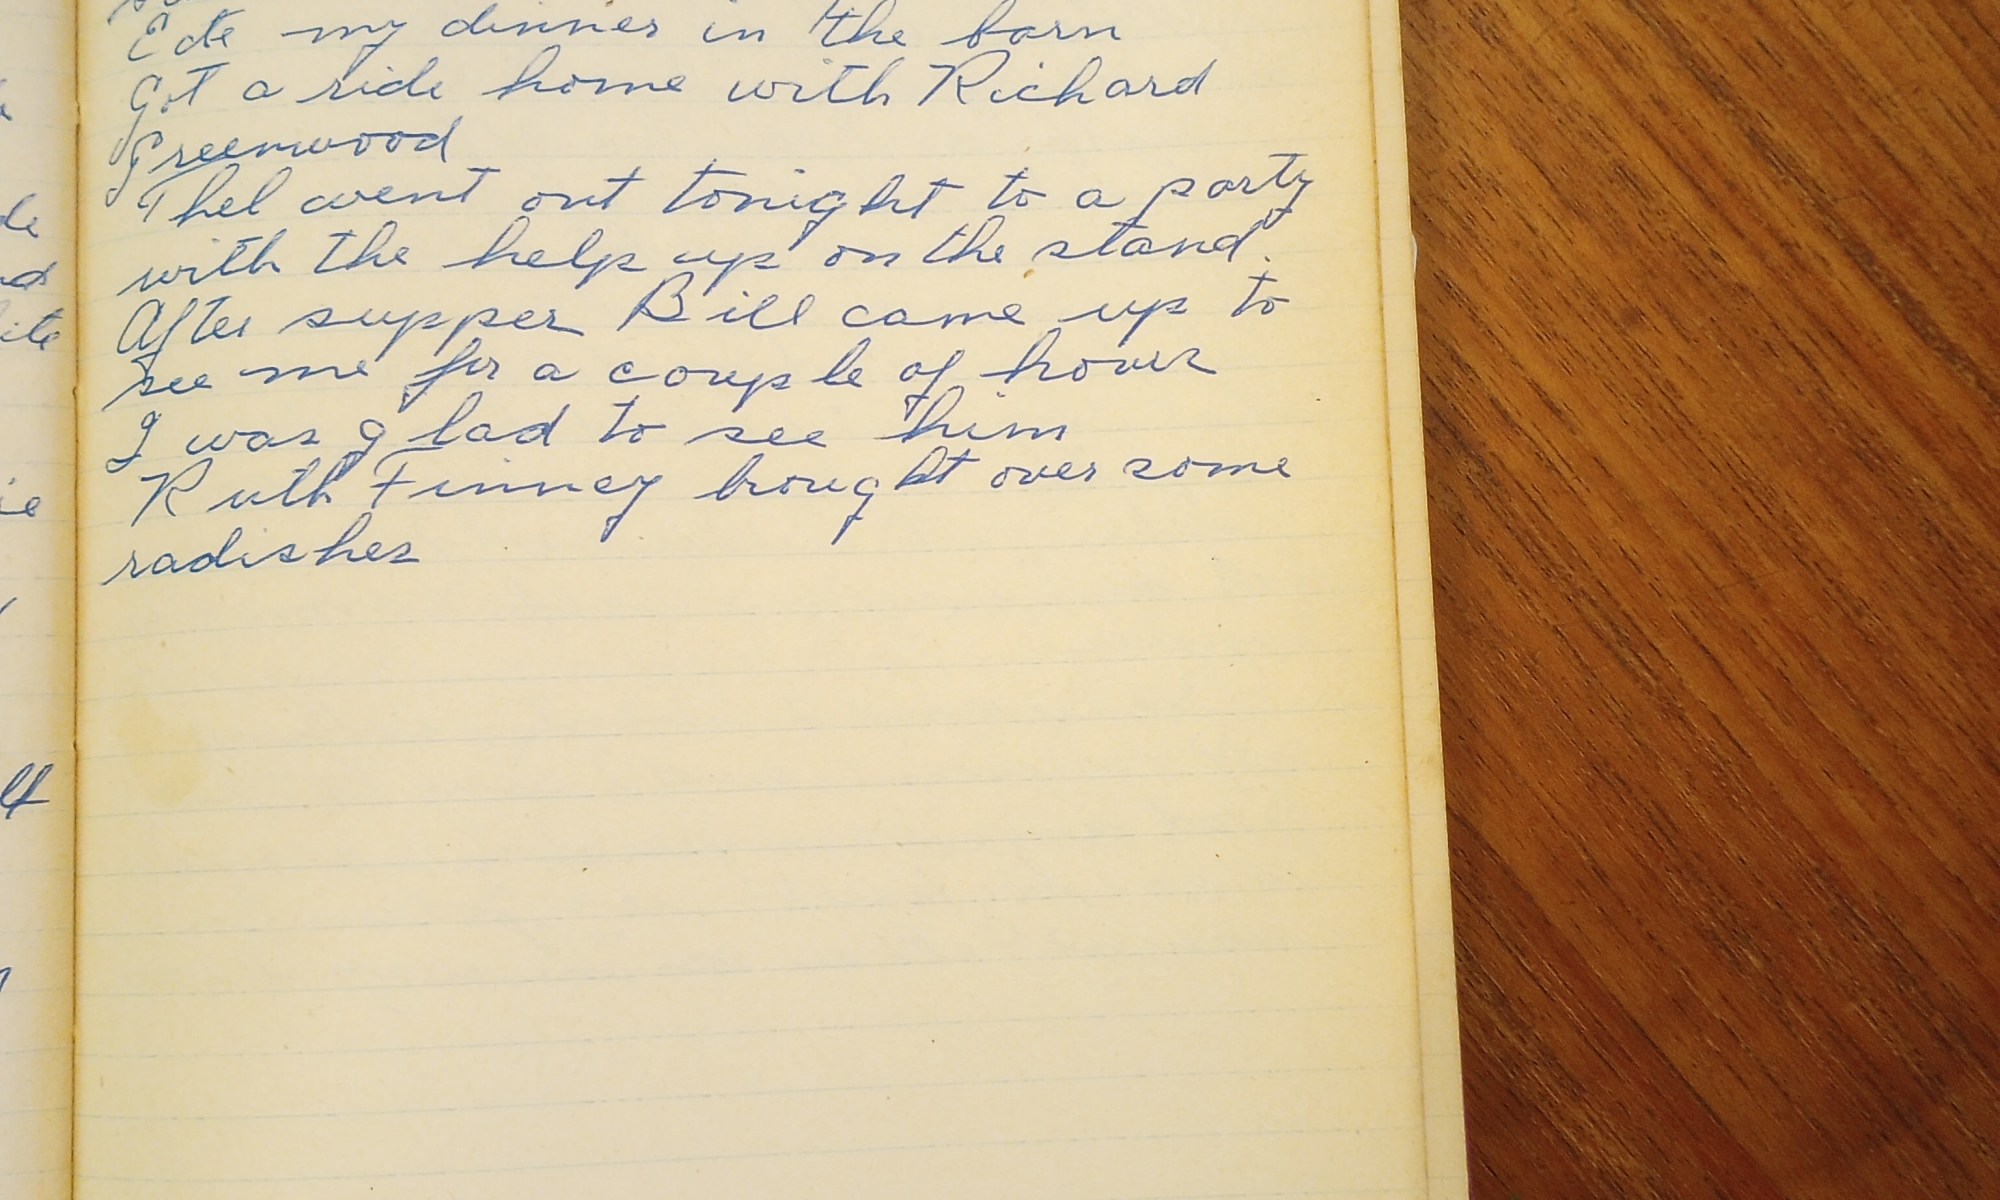 Ete my dinner in the barn
Got a ride home with Richard
Greenwood
Thel went out tonight to a party
with the help up on the stand.
After supper Bill came up to
see me for a couple of hours
I was glad to see him
Ruth Finney brought over some
radishes